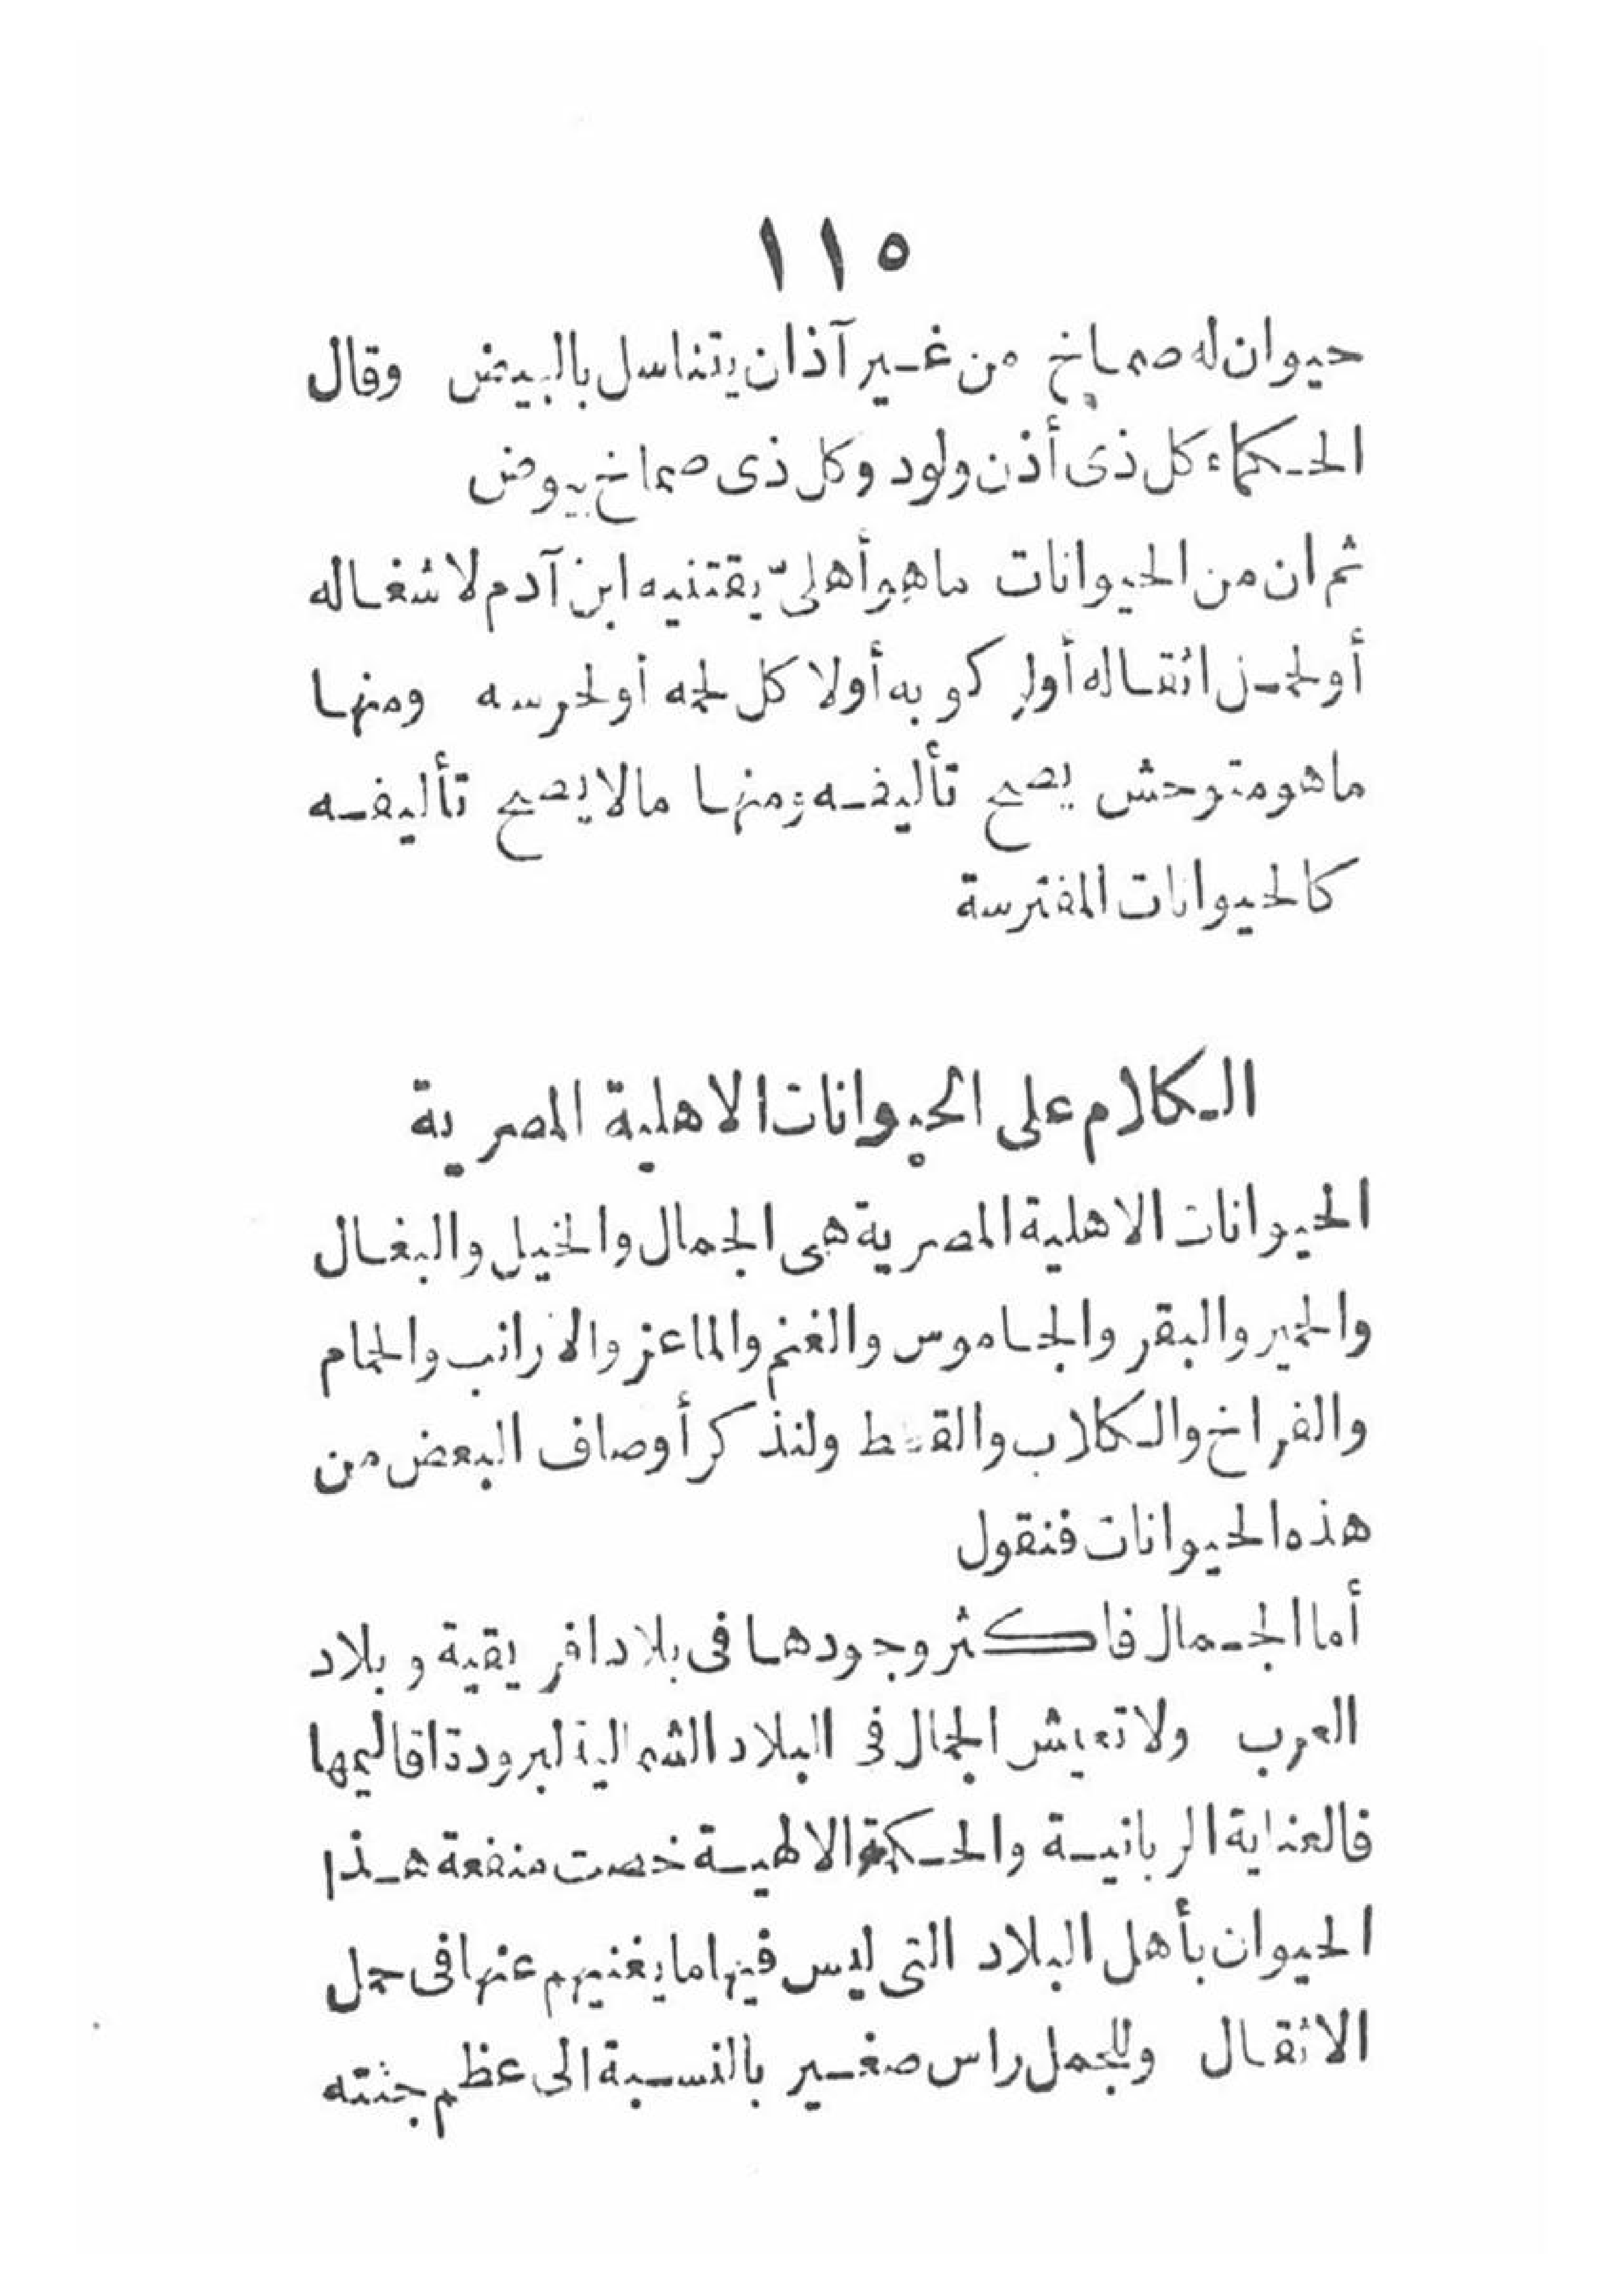 ١١٥
حيوان له صماخ من غير آذان يتناسل بالبيض وقال
الحكماء كل ذى أذن ولود وكل ذى صماخ بيوض
ثم ان من الحيوانات ماهو أهلىّ يقتنيه ابن آدم لاشغاله
أولحمل اثقاله أولركوبه أولاكل لحمه أولحرسه ومنها
ماهو متوحش يصح تأليفه ومنها مالا يصح تأليفه
كالحيوانات المفترسة
الكلام على الحيوانات الاهلية المصرية
الحيوانات الاهلية المصرية هى الجمال والخيل والبغال
والحمير والبقر والجاموس والغنم والماعز والارانب والحمام
والفراخ والكلاب والقطط ولنذكر أوصاف البعض من
هذه الحيوانات فنقول
أما الجمال فاكثر وجودها فى بلاد افريقية وبلاد
العرب ولا تعيش الجمال فى البلاد الشمالية لبرودة اقاليمها
فالعناية الربانية والحكمة الالهية خصت منفعة هذا
الحيوان بأهل البلاد التى ليس فيها ما يغنيهم عنها فى حمل
الاثقال وللجمل راس صغير بالنسبة الى عظم جثته